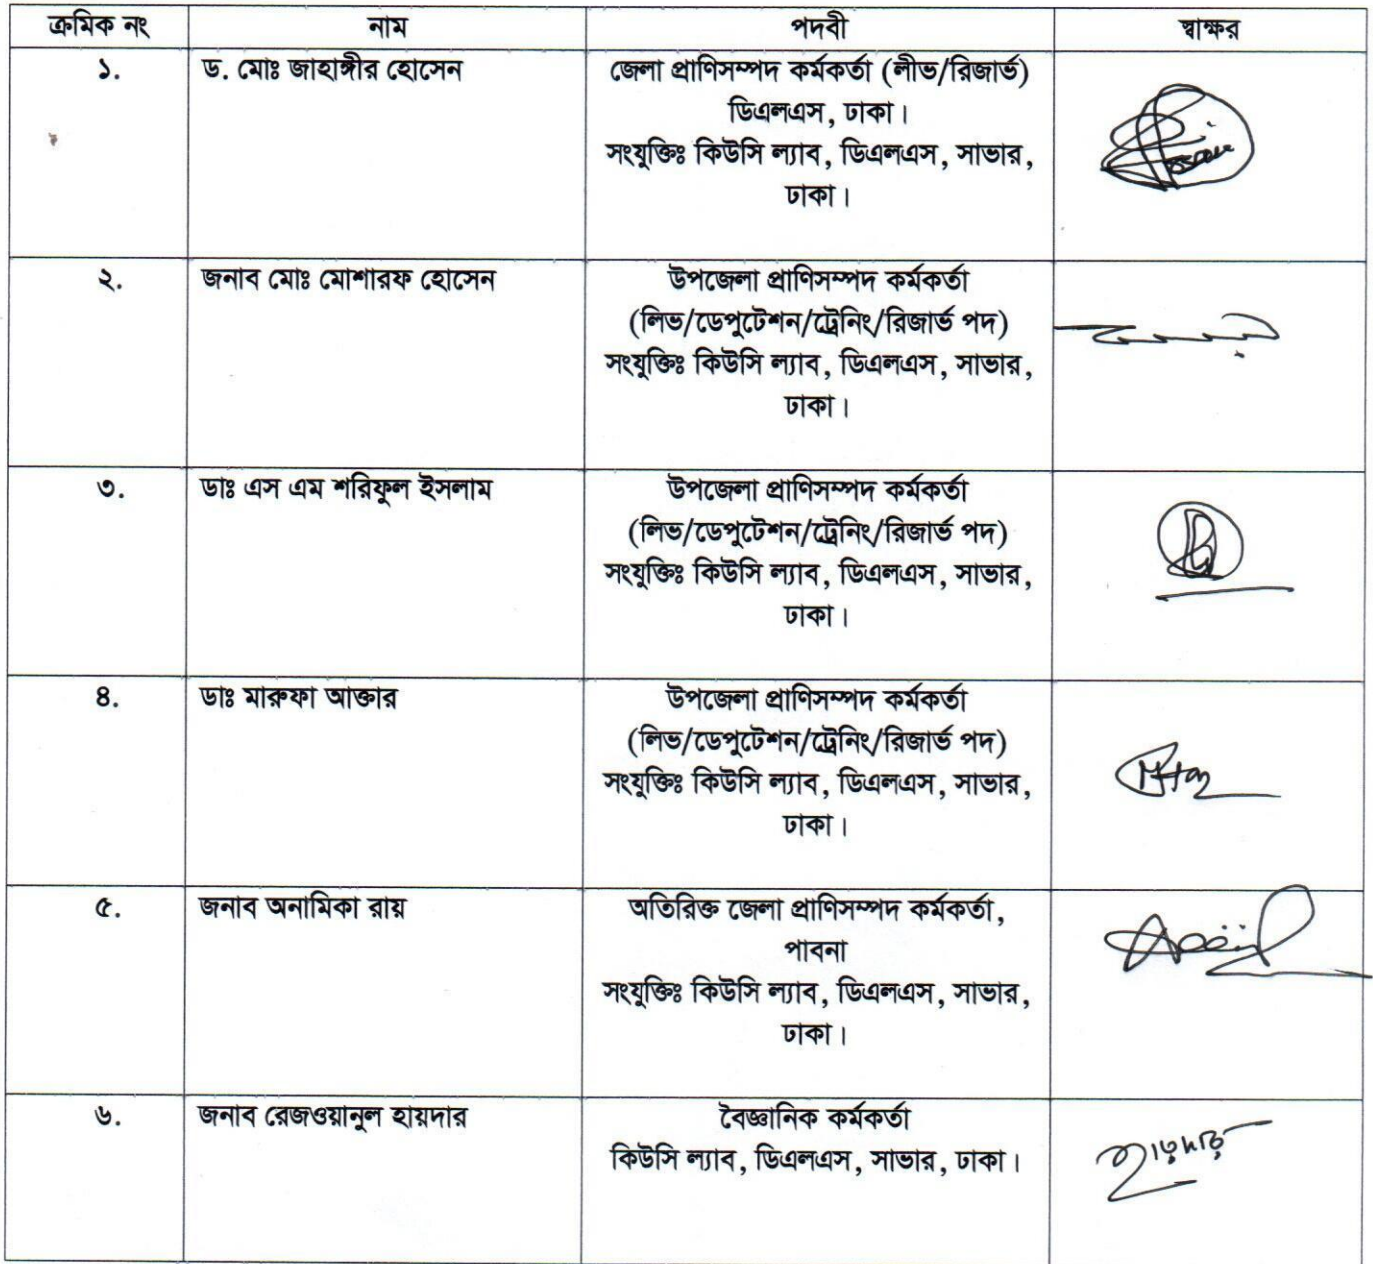 ক্রমিক নং নাম পদবী স্বাক্ষর
১. ড. মোঃ জাহাঙ্গীর হোসেন জেলা প্রাণিসম্পদ কর্মকর্তা (লীভ/রিজার্ভ)
ডিএলএস, ঢাকা।
সংযুক্তিঃ কিউসি ল্যাব, ডিএলএস, সাভার,
ঢাকা।
২. জনাব মোঃ মোশারফ হোসেন উপজেলা প্রাণিসম্পদ কর্মকর্তা
(লিভ/ডেপুটেশন/ট্রেনিং/রিজার্ভ পদ)
সংযুক্তিঃ কিউসি ল্যাব, ডিএলএস, সাভার,
ঢাকা।
৩. ডাঃ এস এম শরিফুল ইসলাম উপজেলা প্রাণিসম্পদ কর্মকর্তা
(লিভ/ডেপুটেশন/ট্রেনিং/রিজার্ভ পদ)
সংযুক্তিঃ কিউসি ল্যাব, ডিএলএস, সাভার,
ঢাকা।
৪. ডাঃ মারুফা আক্তার উপজেলা প্রাণিসম্পদ কর্মকর্তা
(লিভ/ডেপুটেশন/ট্রেনিং/রিজার্ভ পদ)
সংযুক্তিঃ কিউসি ল্যাব, ডিএলএস, সাভার,
ঢাকা।
৫. জনাব অনামিকা রায় অতিরিক্ত জেলা প্রাণিসম্পদ কর্মকর্তা,
পাবনা
সংযুক্তিঃ কিউসি ল্যাব, ডিএলএস, সাভার,
ঢাকা।
৬. জনাব রেজওয়ানুল হায়দার বৈজ্ঞানিক কর্মকর্তা
কিউসি ল্যাব, ডিএলএস, সাভার, ঢাকা।